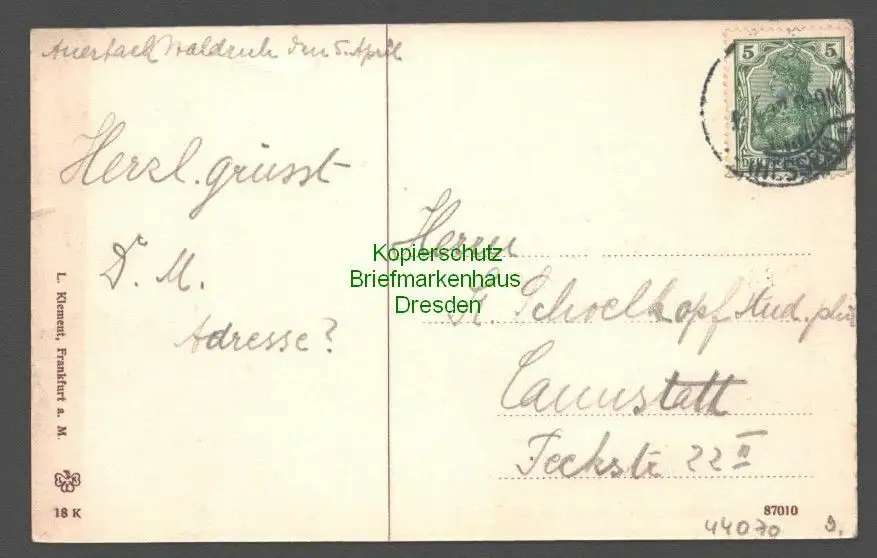 Auerbach Waldruh den 5. April
Herzl. grüsst
Dr M.
Adresse?
Herrn
K. Schoelkopf stud. phil
Cannstatt
Teckstr 22 II
5 5
(HESSEN)
L. Klement, Frankfurt a. M.
18 K
87010
44070 9.
Kopierschutz
Briefmarkenhaus
Dresden